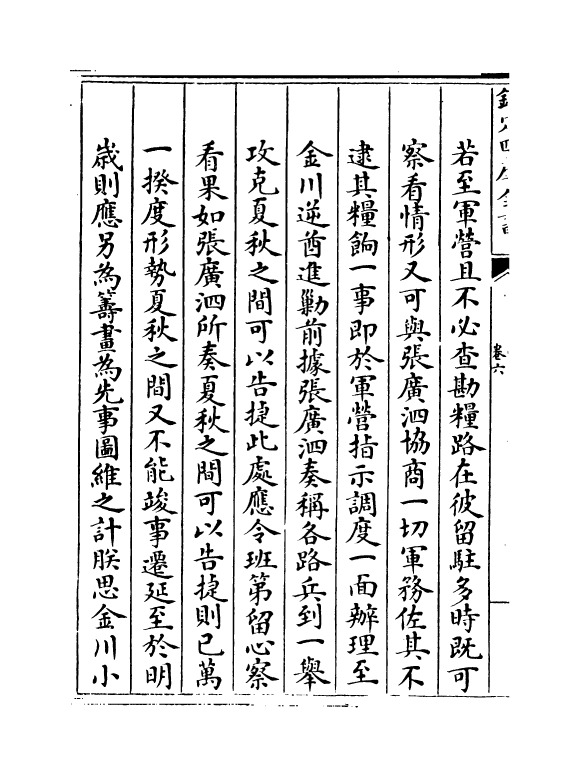 欽定四庫全書
卷六
若至軍營且不必查勘糧路在彼留駐多時既可
察看情形又可與張廣泗協商一切軍務佐其不
逮其糧餉一事即於軍營指示調度一面辦理至
金川逆酋進勦前據張廣泗奏稱各路兵到一舉
攻克夏秋之間可以告捷此處應令班第留心察
看果如張廣泗所奏夏秋之間可以告捷則已萬
一揆度形勢夏秋之間又不能竣事遷延至於明
歳則應另為籌畫為先事圖維之計朕思金川小